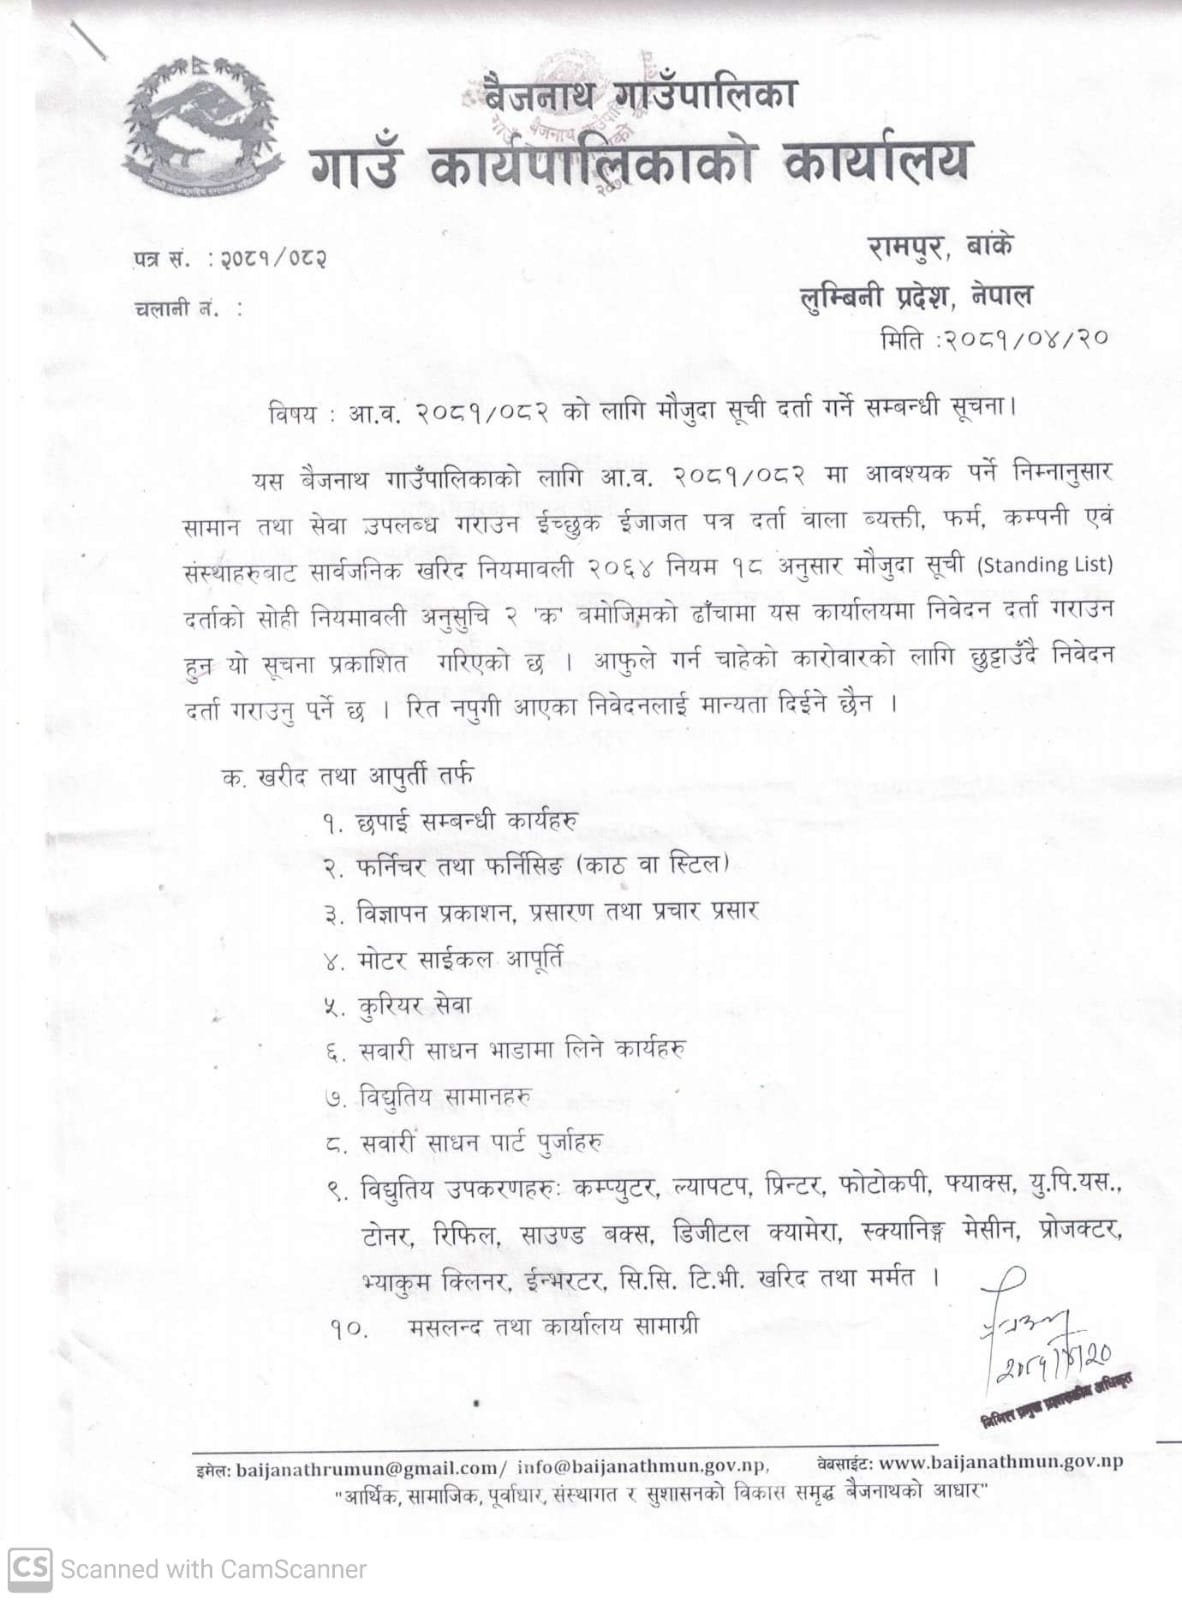 बैजनाथ गाउँपालिका
गाउँ कार्यपालिकाको कार्यालय
रामपुर, बांके
पत्र सं. : २०८१/०८२
लुम्बिनी प्रदेश, नेपाल
चलानी नं. :
मिति :२०८१/०४/२०
विषय : आ.व. २०८१/०८२ को लागि मौजुदा सूची दर्ता गर्ने सम्बन्धी सूचना।
यस बैजनाथ गाउँपालिकाको लागि आ.व. २०८१/०८२ मा आवश्यक पर्ने निम्नानुसार
सामान तथा सेवा उपलब्ध गराउन ईच्छुक ईजाजत पत्र दर्ता वाला ब्यक्ती, फर्म, कम्पनी एवं
संस्थाहरुवाट सार्वजनिक खरिद नियमावली २०६४ नियम १८ अनुसार मौजुदा सूची (Standing List)
दर्ताको सोही नियमावली अनुसुचि २ 'क' बमोजिमको ढाँचामा यस कार्यालयमा निवेदन दर्ता गराउन
हुन यो सूचना प्रकाशित गरिएको छ । आफुले गर्न चाहेको कारोवारको लागि छुट्टाउँदै निवेदन
दर्ता गराउनु पर्ने छ । रित नपुगी आएका निवेदनलाई मान्यता दिईने छैन ।
क. खरीद तथा आपुर्ती तर्फ
१. छपाई सम्बन्धी कार्यहरु
२. फर्निचर तथा फर्निसिङ (काठ वा स्टिल)
३. विज्ञापन प्रकाशन, प्रसारण तथा प्रचार प्रसार
४. मोटर साईकल आपूर्ति
५. कुरियर सेवा
६. सवारी साधन भाडामा लिने कार्यहरु
७. विद्युतिय सामानहरु
८. सवारी साधन पार्ट पुर्जाहरु
९. विद्युतिय उपकरणहरुः कम्प्युटर, ल्यापटप, प्रिन्टर, फोटोकपी, फ्याक्स, यु.पि.यस.,
टोनर, रिफिल, साउण्ड बक्स, डिजीटल क्यामेरा, स्क्यानिङ्ग मेसीन, प्रोजक्टर,
भ्याकुम क्लिनर, ईन्भरटर, सि.सि. टि.भी. खरिद तथा मर्मत ।
१०. मसलन्द तथा कार्यालय सामाग्री
२०८१/४/२०
निमित्त प्रमुख प्रशासकीय अधिकृत
इमेल: baijanathrumun@gmail.com/ info@baijanathmun.gov.np, वेबसाईट: www.baijanathmun.gov.np
"आर्थिक, सामाजिक, पूर्वाधार, संस्थागत र सुशासनको विकास समृद्ध बैजनाथको आधार"
CS Scanned with CamScanner